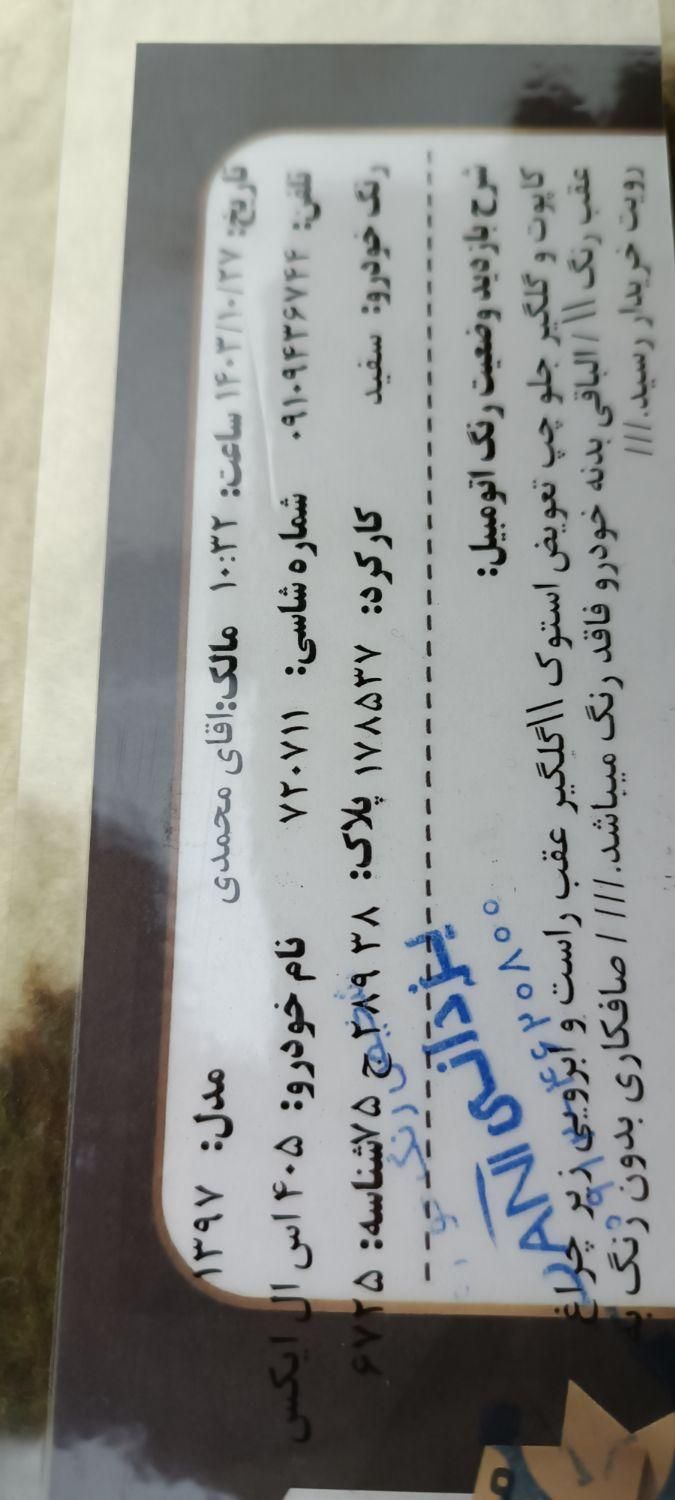 تاریخ: ۱۴۰۳/۱۰/۲۷ ساعت: ۱۰:۳۲ مالک:اقای محمدی مدل: ۱۳۹۷
تلفن: ۰۹۱۰۹۴۳۶۷۴۴ شماره شاسی: ۷۲۰۷۱۱ نام خودرو: ۴۰۵ اس ال ایکس
رنگ خودرو: سفید کارکرد: ۱۷۸۵۳۷ پلاک: ۳۸ ۲۸۹ ج ۷۵ شناسه: ۶۷۲۵
شرح بازدید وضعیت رنگ اتومبیل:
کاپوت و گلگیر جلو چپ تعویض استوک \\گلگیر عقب راست و ابرویی زیر چراغ
عقب رنگ \\ / الباقی بدنه خودرو فاقد رنگ میباشد./// / صافکاری بدون رنگ به
رویت خریدار رسید.///
یزدانی